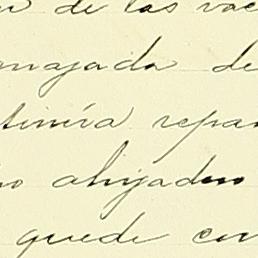 de las vac
majada de
tinúa repar
ahijaden
quede con